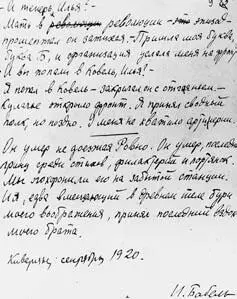 - И теперь, Илья? -
- Мать в революции - эпизод -
прошептал он затихая. - Пришла моя буква,
буква Б, и организация услала меня на фронт.
И вы попали в Ковель, Илья? -
- Я попал в Ковель - закричал он с отчаянием. -
Кулачье открыло фронт. Я принял сводный
полк, но поздно. У меня не хватило артиллерии.
Он умер не доезжая Ровно. Он умер, последний
принц среди стихов, филактерий и портянок.
Мы похоронили его на забытой станции.
И я, едва вмещающий в древнем теле бури
моего воображения, принял последний вздох
моего брата.
сентябрь 1920.
И. Бабель